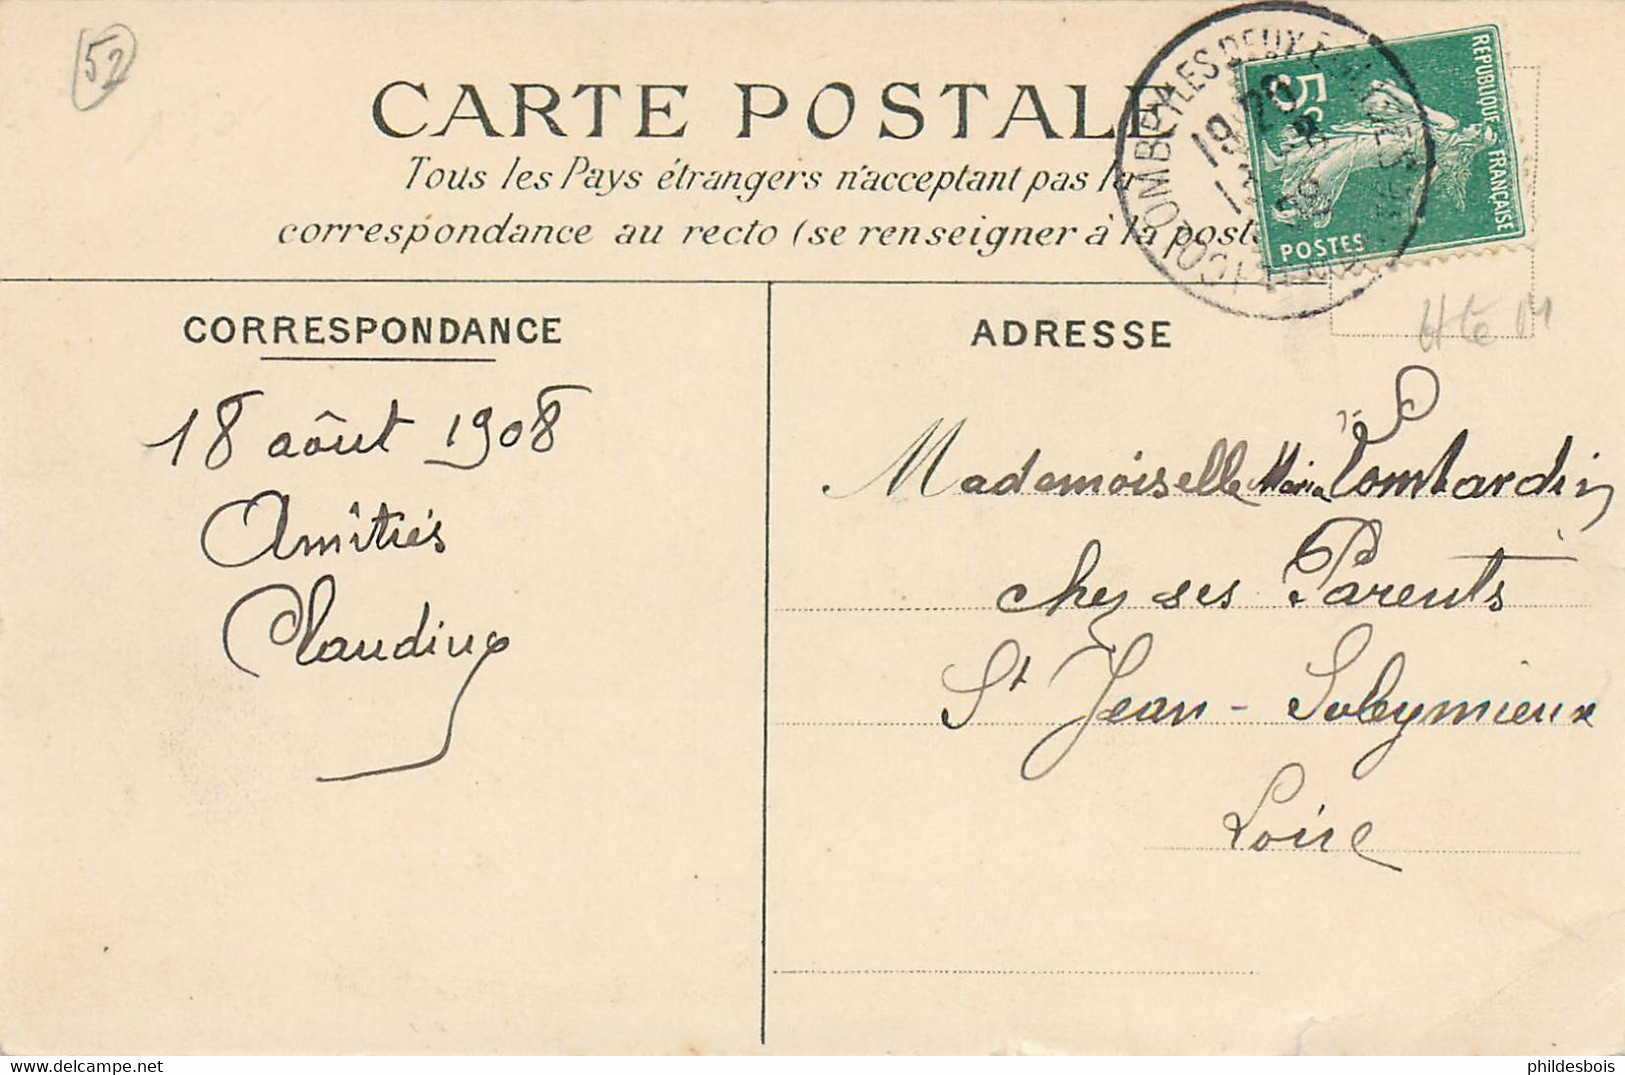 52
CARTE POSTALE
Tous les Pays étrangers n'acceptant pas la
correspondance au recto (se renseigner à la poste
COLOMBEY LES DEUX EGLISES
19 20
8
08
5c
REPUBLIQUE FRANÇAISE
POSTES
Hte M
CORRESPONDANCE
18 août 1908
Amitiés
Claudius
ADRESSE
Mademoiselle Maria Lombardin
chez ses Parents
St Jean - Soleymieux
Loire
delcampe.net
phildesbois